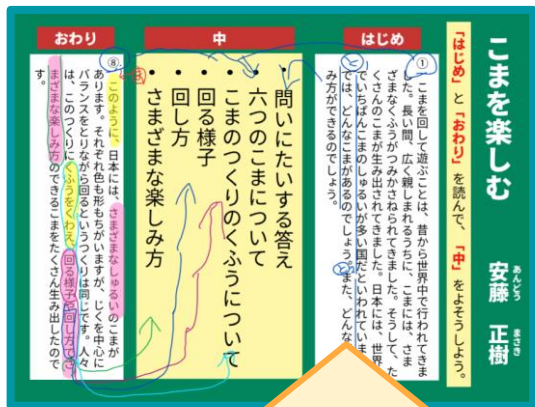 こまを楽しむ
安藤 正樹
あんどう まさき
「はじめ」と「おわり」を読んで、「中」をよそうしよう。
はじめ
① こまを回して遊ぶことは、昔から世界中で行われてきま
した。長い間、広く親しまれるうちに、こまには、さま
ざまなくふうがつみかさねられてきました。そうして、た
くさんのこまが生み出されてきました。日本には、世界
でいちばんこまのしゅるいが多い国だといわれていま
では、どんなこまがあるのでしょう。また、どんな
み方ができるのでしょう。
中
・問いにたいする答え
・六つのこまについて
・こまのつくりのくふうについて
・回る様子
・回し方
・さまざまな楽しみ方
おわり
⑧ このように、日本には、さまざまなしゅるいのこまが
あります。それぞれ色も形もちがいますが、じくを中心に
バランスをとりながら回るというつくりは同じです。人々
は、このつくりにくふうをくわえ、回る様子や回し方でさ
まざまな楽しみ方のできるこまをたくさん生み出したので
す。